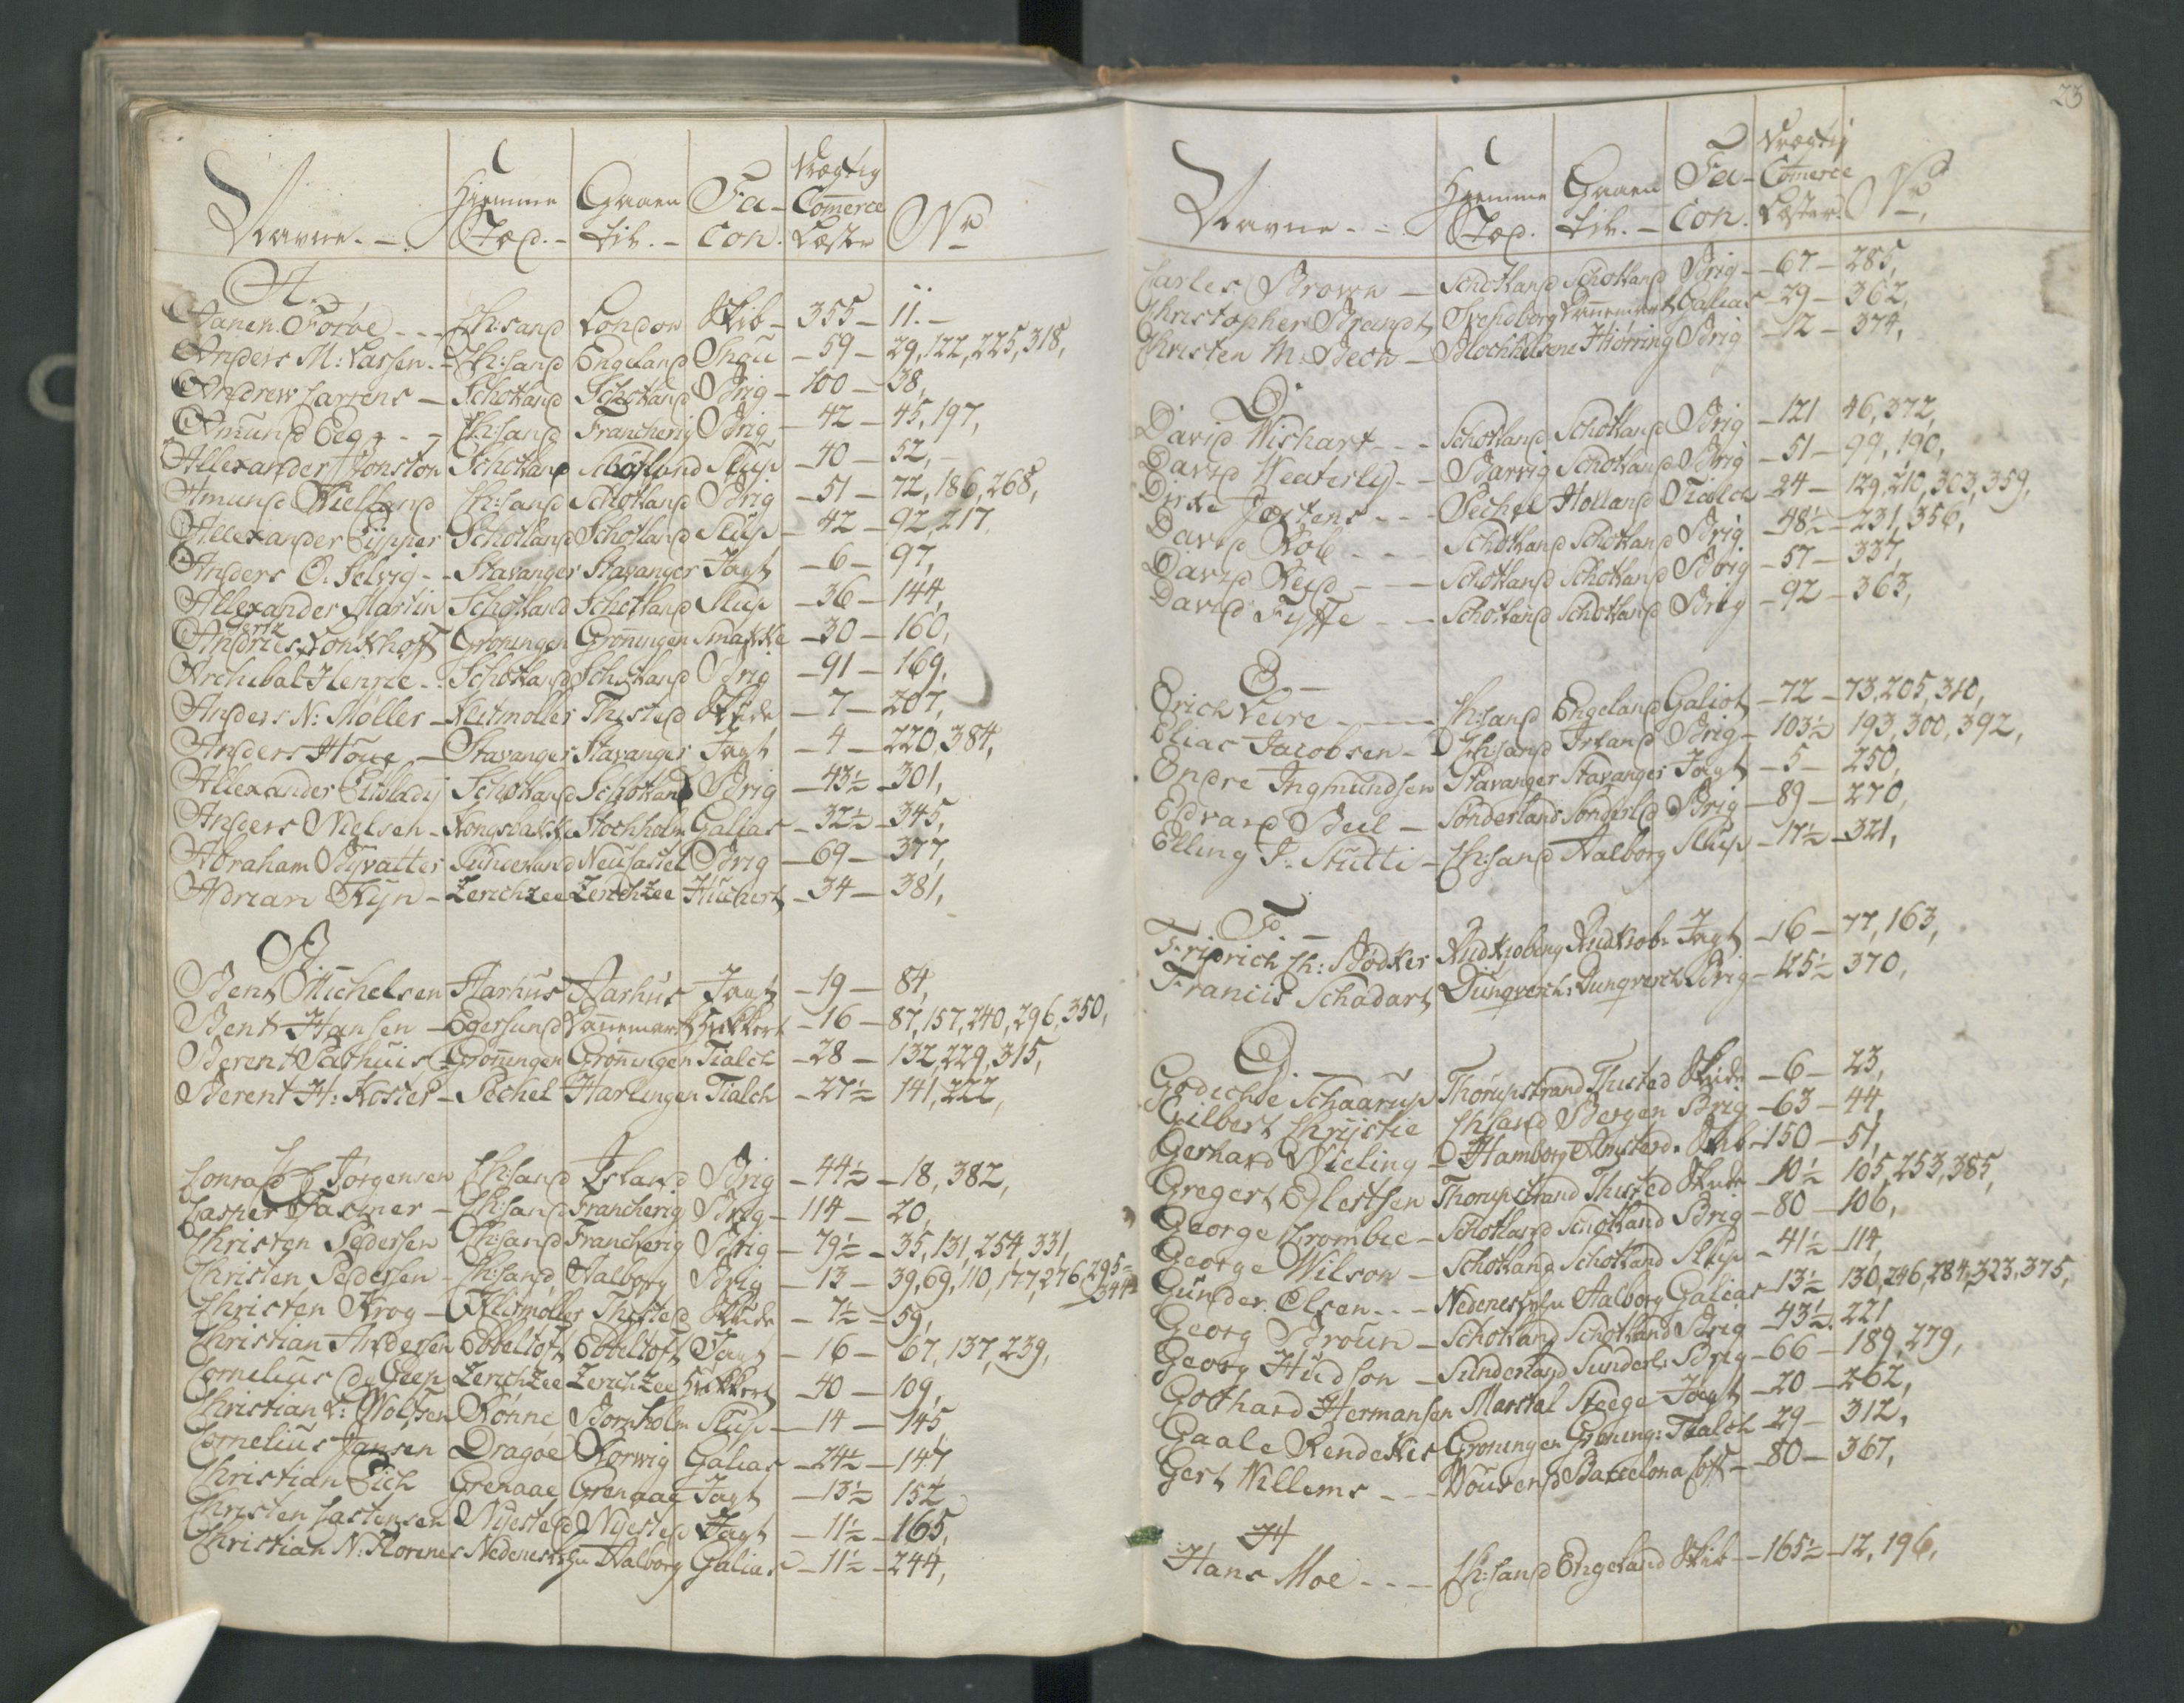 Navne. Hjemme Stæd. Gaaen til. Facon. Drægtig Comerce Læster No
A.
Aanen Foröe Ch:sand London Skib 355 11.
Anders M: Lassen Ch:sand Engeland Snau 59 29, 122, 225, 318,
Andrew Larsens Schotland Schotland Brig 100 38,
Amund Eeg Ch:sand Francherig Brig 42 45, 197,
Allexander Jonston Schotland Slup 40 52,
Amund Kielland Ch:sand Schotland Brig 51 72, 186, 268,
Allexander Schotland Schotland Slup 42 92, 217.
Anders O. Selvig Stavanger Stavanger Jagt 6 97,
Allexander Martin Schotland Schotland Slup 36 144,
Andries Groningen Groningen Smakke 30 160,
Archibal Henrie Schotland Schotland Brig 91 169,
Anders N: Møller Klitmøller Thisted Skude 7 207,
Anders Höne Stavanger Stavanger Jagt 4 220, 384,
Allexander Schotland Schotland Brig 43½ 301,
Anders Nielsen Kongsbakke Stochholm Galias 32½ 345,
Abraham Sunderland Neucastel Brig 69 377,
Adrian Kyn Zerichzee Zerichzee Huchert 34 381,
B.
Bent Michelsen Aarhus Aarhus Jagt 19 84,
Bent Hansen Egersund Dannemark Hukkert 16 87, 157, 240, 296, 350,
Berent Pathuis Gronningen Gronningen Tialch 28 132, 229, 315,
Berent H: Koster Pechel Harlingen Tialch 27½ 141, 222,
C
Conrad Jörgensen Ch:sand Island Brig 44½ 18, 382,
Casper Fasmer Ch:sand Francherig Brig 114 20,
Christen Pedersen Ch:sand Francherig Brig 79½ 35, 131, 254, 331,
Christen Pedersen Ch:sand Aalborg Brig 13 39, 69, 110, 177, 276, 295, 344
Christen Krog Klitmøller Thisted Skude 7½ 59,
Christian Andersen Ebbeltoft Ebbeltoft Jagt 16 67, 137, 239,
Cornelius de Zerichzee Zerichzee Hukkert 40 109,
Christian L: Wolfsen Rönne Bornholm Slup 14 145,
Cornelius Jansen Dragöe Korwig Galias 24½ 147
Christian Eich Grenaae Grenaae Jagt 13½ 152
Christen Carstensen Nysted Nysted Jagt 11½ 165,
Christian N: Florenes Nedenes Aalborg Galias 11½ 244,
23
Navne. Hjemme Stæd. Gaaen til. Facon. Drægtig Comerce Læster. No
Carles Brown Schotland Schotland Brig 67 285,
Christopher Brandt Svendborg Dannemark Galias 29 362,
Christen M: Beck Blochhusene Hiörring Brig 12 374,
D
David Wishart Schotland Schotland Brig 121 46, 372,
David Weaterly Barvig Schotland Brig 51 99, 190,
Dirke Jostens Pechel Holland Tialch 24 129, 210, 303, 359,
David Rob Schotland Schotland Brig 48½ 231, 356,
David Reid Schotland Schotland Brig 57 337,
David Fyffe Schotland Schotland Brig 92 363,
E
Erich Veire Ch:sand Engeland Galiot 72 73, 205, 310,
Elias Jacobsen Ch:sand Irland Brig 103½ 193, 300, 392,
Endre Ingmundsen Stavanger Stavanger Jagt 5 250,
Edvard Beil Sonderland Sonderld Brig 89 270,
Elling J. Stutti Ch:sand Aalborg Slup 17½ 321,
F.
Fridrich Ch: Bödker Rudkiobing Rudkiob: Jagt 16 77, 163,
Francis Schadart Dunqverch: Dunqverch Brig 125½ 370,
G.
Godichse Schaarup Thorupstrand Thisted Skude 6 23,
Gilbert Christie Ch:sand Bergen Brig 63 44,
Gerhard Wieling Hamborg Amsterd. Skib 150 51,
Gregert Eglestsen Thorupstrand Thisted Skude 10½ 105, 253, 385,
George Crombie Schotland Schotland Brig 80 106,
George Wilson Schotland Schotland Slup 41½ 114,
Gunder Olsen Nedenes Aalborg Galias 13½ 130, 246, 284, 323, 375,
Georg Broun Schotland Schotland Brig 43½ 221
Georg Hudson Sunderland Sunderl: Brig 66 189, 279,
Gotthard Hermansen Marstal Steege Jagt 20 262,
Gaale Rendekis Groningen Groning: Tialch 29 312,
Gert Willems Barcelona 80 367,
H
Hans Moe Ch:sand Engeland Skib 165½ 12, 196,